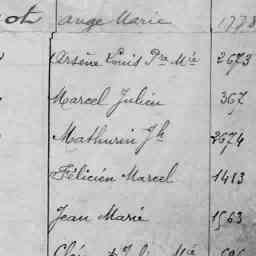 ot Ange Marie 1778
Arsène Louis Pre Mie 2673
Marcel Julien 367
Mathurin Jh 2674
Félicien Marcel 1483
Jean Marie 1563